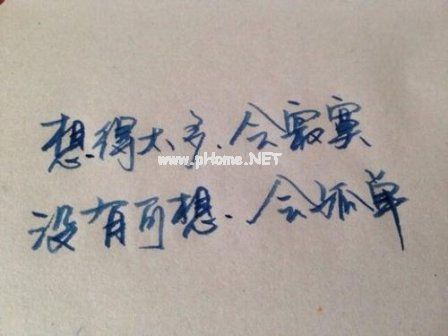 想得太多、会寂寞
www.pHome.NET
没有可想、会孤单